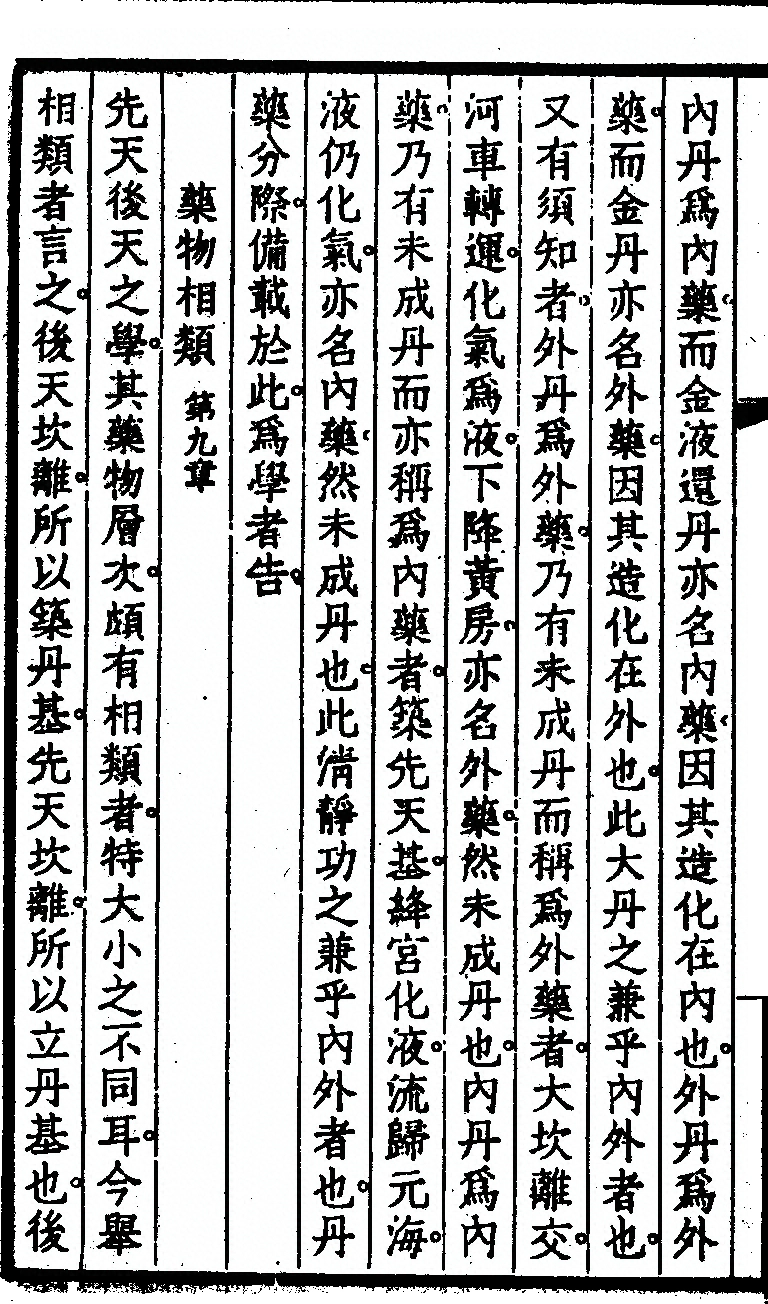 內丹爲內藥而金液還丹亦名內藥因其造化在內也。外丹爲外
藥。而金丹亦名外藥因其造化在外也。此大丹之兼乎內外者也。
又有須知者外丹爲外藥。乃有未成丹而稱爲外藥者。大坎離交。
河車轉運。化氣爲液。下降黃房。亦名外藥。然未成丹也。內丹爲內
藥。乃有未成丹而亦稱爲內藥者。築先天基。絳宮化液。流歸元海。
液仍化氣。亦名內藥然未成丹也。此淸靜功之兼乎內外者也。丹
藥分際。備載於此。爲學者告。
藥物相類 第九章
先天後天之學。其藥物層次。頗有相類者。特大小之不同耳。今舉
相類者言之。後天坎離。所以築丹基。先天坎離。所以立丹基也。後